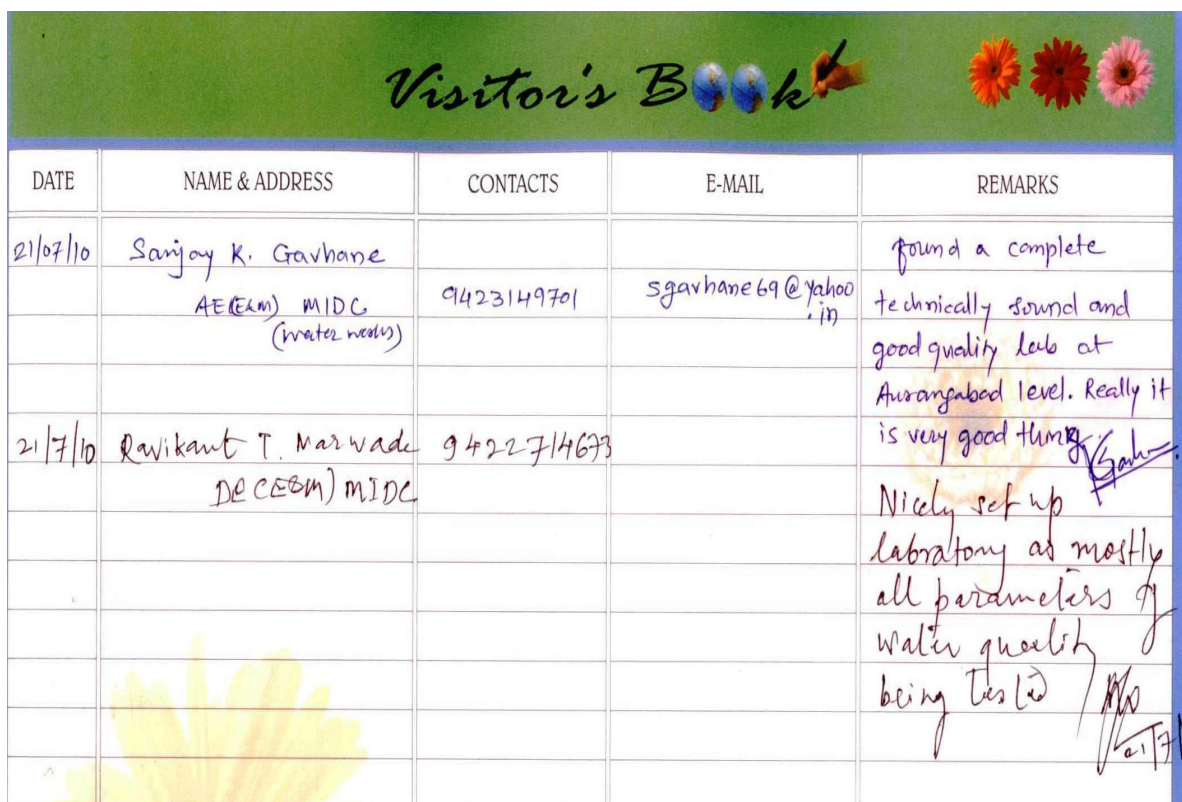 Visitor's Book
DATE NAME & ADDRESS CONTACTS E-MAIL REMARKS
21/07/10 Sanjay K. Gavhane
AE(E&M) MIDC
(water works)
9423149701
sgavhane69@yahoo
.in
found a complete
technically sound and
good quality lab at
Aurangabad level. Really it
is very good thing
21/7/10 Ravikant T. Marwade 9422714673
DE(E&M) MIDC
Nicely set up
labratory as mostly
all parameters of
water quality
being tested
21/7